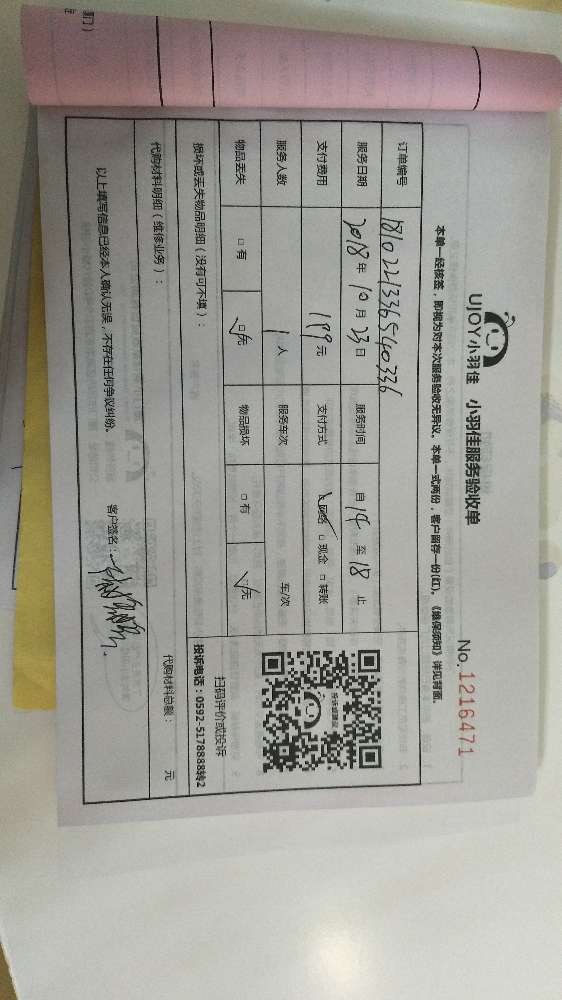 UJOY小羽佳 小羽佳服务验收单
No. 1216471
本单一经核签，即视为对本次服务验收无异议。本单一式两份，客户留存一份(红)。《维保须知》详见背面
订单编号 1810221336540336
服务日期 2018年10月23日 服务时间 自14至18止
支付费用 199元 支付方式 网络 □现金 □转账
服务人数 1人 服务车次 车/次
物品丢失 □有 □无 物品损坏 □有 □无
扫码评价或投诉
投诉电话：0592-5178888转2
损坏或丢失物品明细（没有可不填）：
代购材料明细（维修业务）： 代购材料总额： 元
以上填写信息已经本人确认无误，不存在任何争议纠纷。 客户签名：